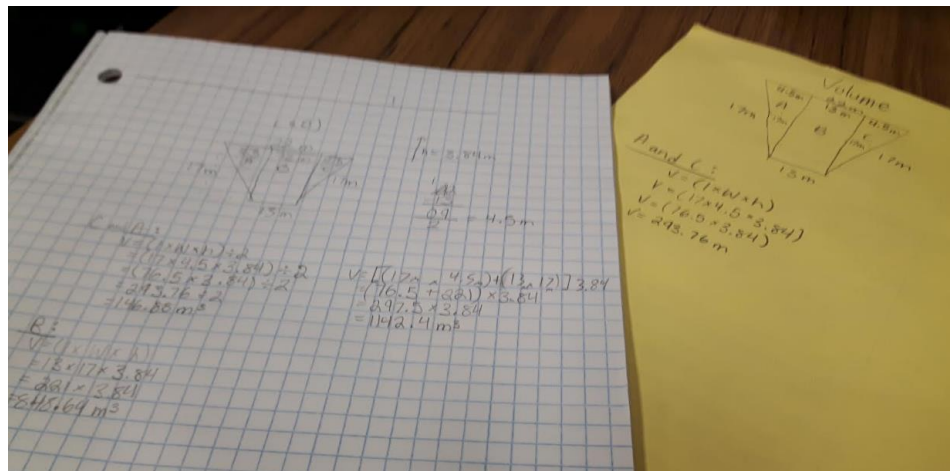 22m
17m
B
17m
13m
h = 3.84m
22
13
09
2
= 4.5m
C and A:
V = (l×w×h)÷2
= (17×4.5×3.84)÷2
= (76.5×3.84)÷2
= 293.76÷2
= 146.88 m³
B:
V = (l×w×h)
= 13×17×3.84
= 221×3.84
m³
= (76.5 + 221) × 3.84
= 297.5 × 3.84
= 1142.4 m³
Volume
4.5m
22m
13m
4.5m
17m
A
17m
B
C
17m
17m
13m
A and C:
V = (l×w×h)
V = (17×4.5×3.84)
V = (76.5×3.84)
V = 293.76 m